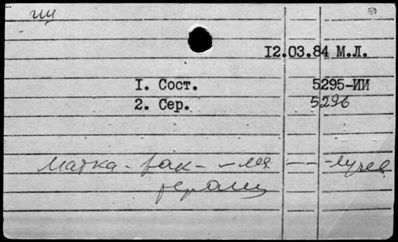 ИИ
12.03.84 М.Л.
1. Сост. 5295-ИИ
2. Сер. 5296
матка - рак - - ля - - - лучев
терапи